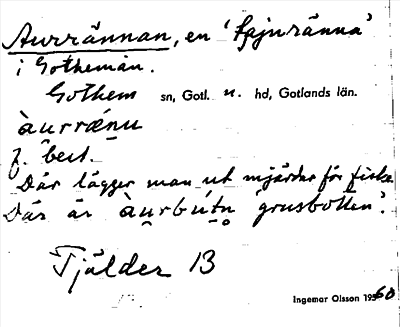 Aurrännan, en 'Spjuränna'
i Gotheman.
Gothem sn, Gotl. n. hd, Gotlands län.
àurrænu
f. best.
Där lägger man ut mjärdar för fiske.
Där är àurbútn grusbotten'.
Tjälder 13
Ingemar Olsson 1960